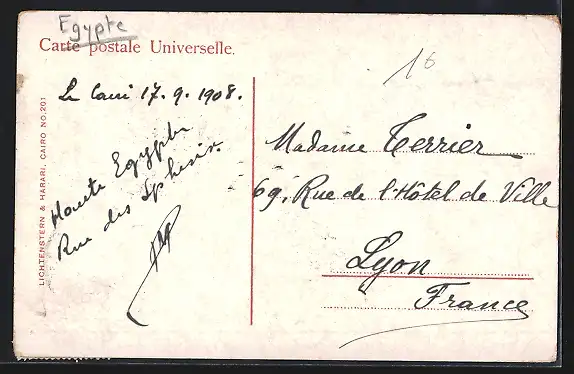 Egypte
Carte postale Universelle.
16
Le Caire 17.9.1908.
Haute Egypte
Rue des Sphinx.
LICHTENSTERN & HARARI, CAIRO NO. 201
Madame Terrier
69, Rue de l'Hôtel de Ville
Lyon
France